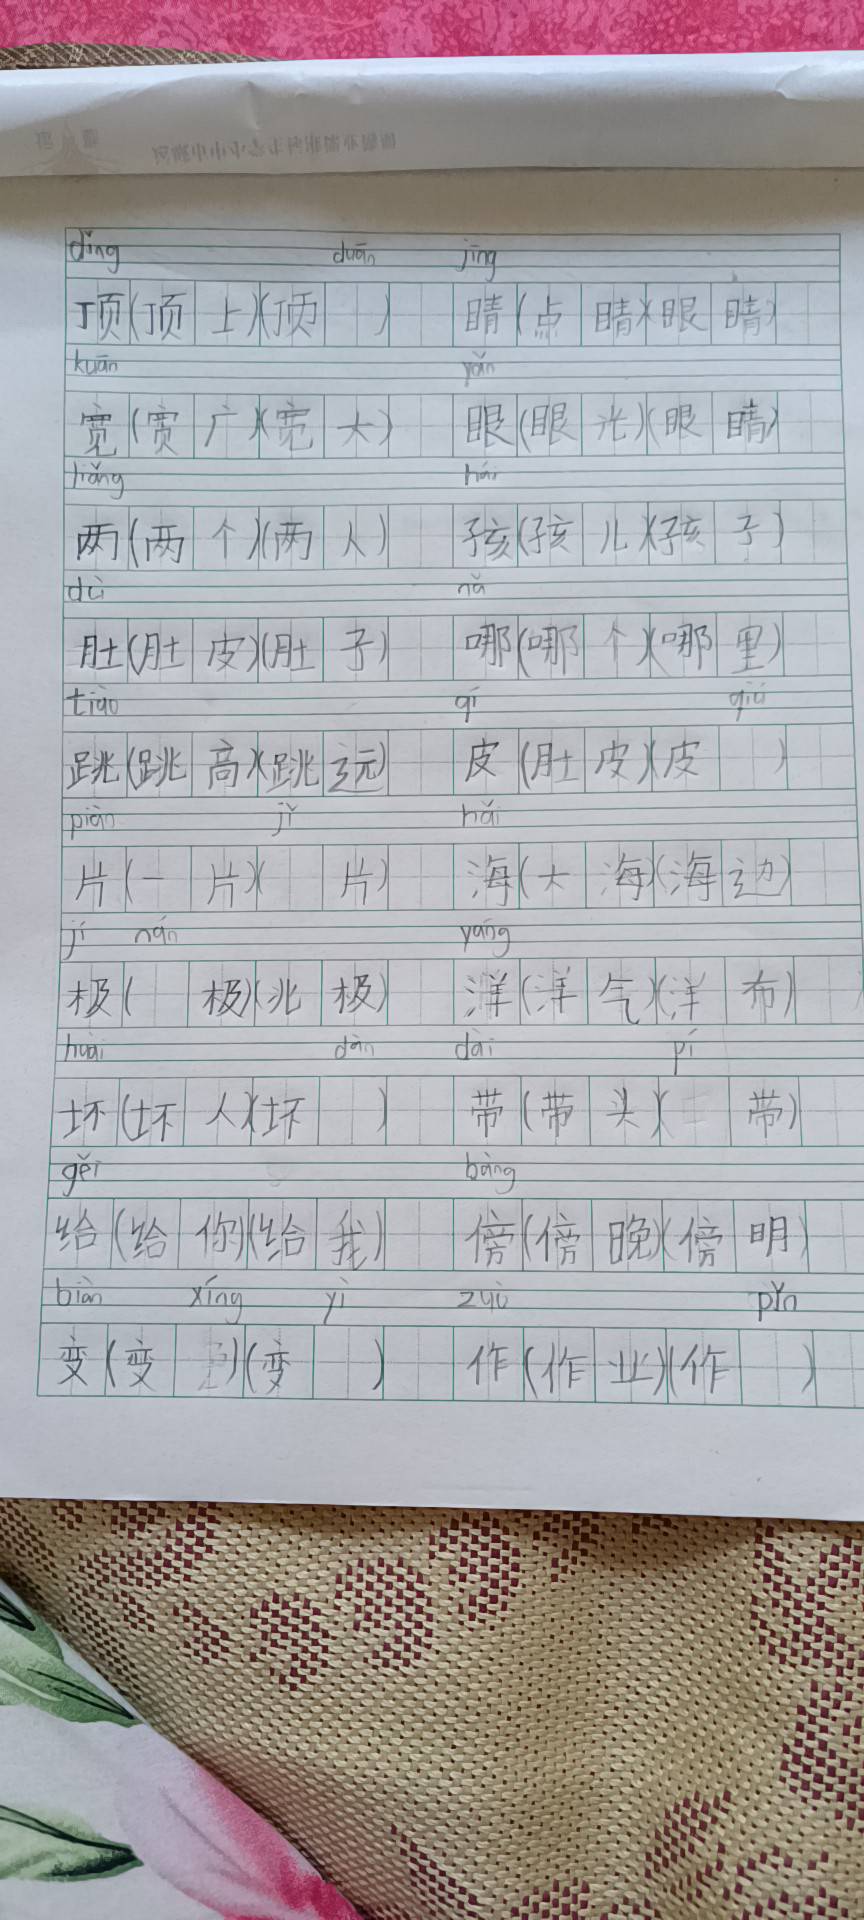 dǐng duān jīng
顶(顶上)(顶 ) 睛(点睛)(眼睛)
kuān yǎn
宽(宽广)(宽大) 眼(眼光)(眼睛)
liǎng hái
两(两个)(两人) 孩(孩儿)(孩子)
dù nǎ
肚(肚皮)(肚子) 哪(哪个)(哪里)
tiào qí qiú
跳(跳高)(跳远) 皮(肚皮)(皮 )
piàn jǐ hǎi
片(一片)( 片) 海(大海)(海边)
jí nán yáng
极( 极)(北极) 洋(洋气)(洋布)
huài dàn dài pí
坏(坏人)(坏 ) 带(带头)( 带)
gěi bàng
给(给你)(给我) 傍(傍晚)(傍明)
biàn xíng yì zuò pǐn
变(变 )(变 ) 作(作业)(作 )